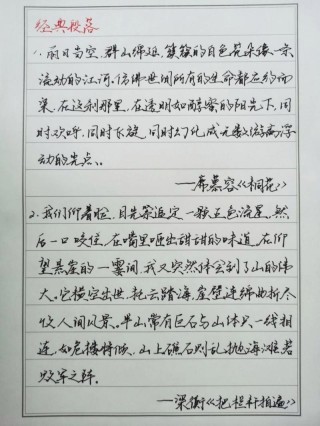 经典段落
1、丽日当空,群山绵延,簇簇的白色花朵像一条
流动的江河。仿佛世间所有的生命都在约而
来,在这刹那里,在透明如醇蜜的阳光下,同
时欢呼,同时飞旋,同时幻化成无数游离浮
动的光点。
——席慕容《桐花》
2、我们仰着脸,目光紧追定一颗五色流星,然
后一口咬住,在嘴里咂出甜甜的味道。在仰
望悬崖的一霎间,我又突然体会到了山的伟
大。它横空出世,托云踏海,崖壁连绵曲折尽
收人间风景。半山常有巨石与山体只一线相
连,如危楼将倾,山上礁石则乱抛海滩若
败军之阵。
——梁衡《把栏杆拍遍》